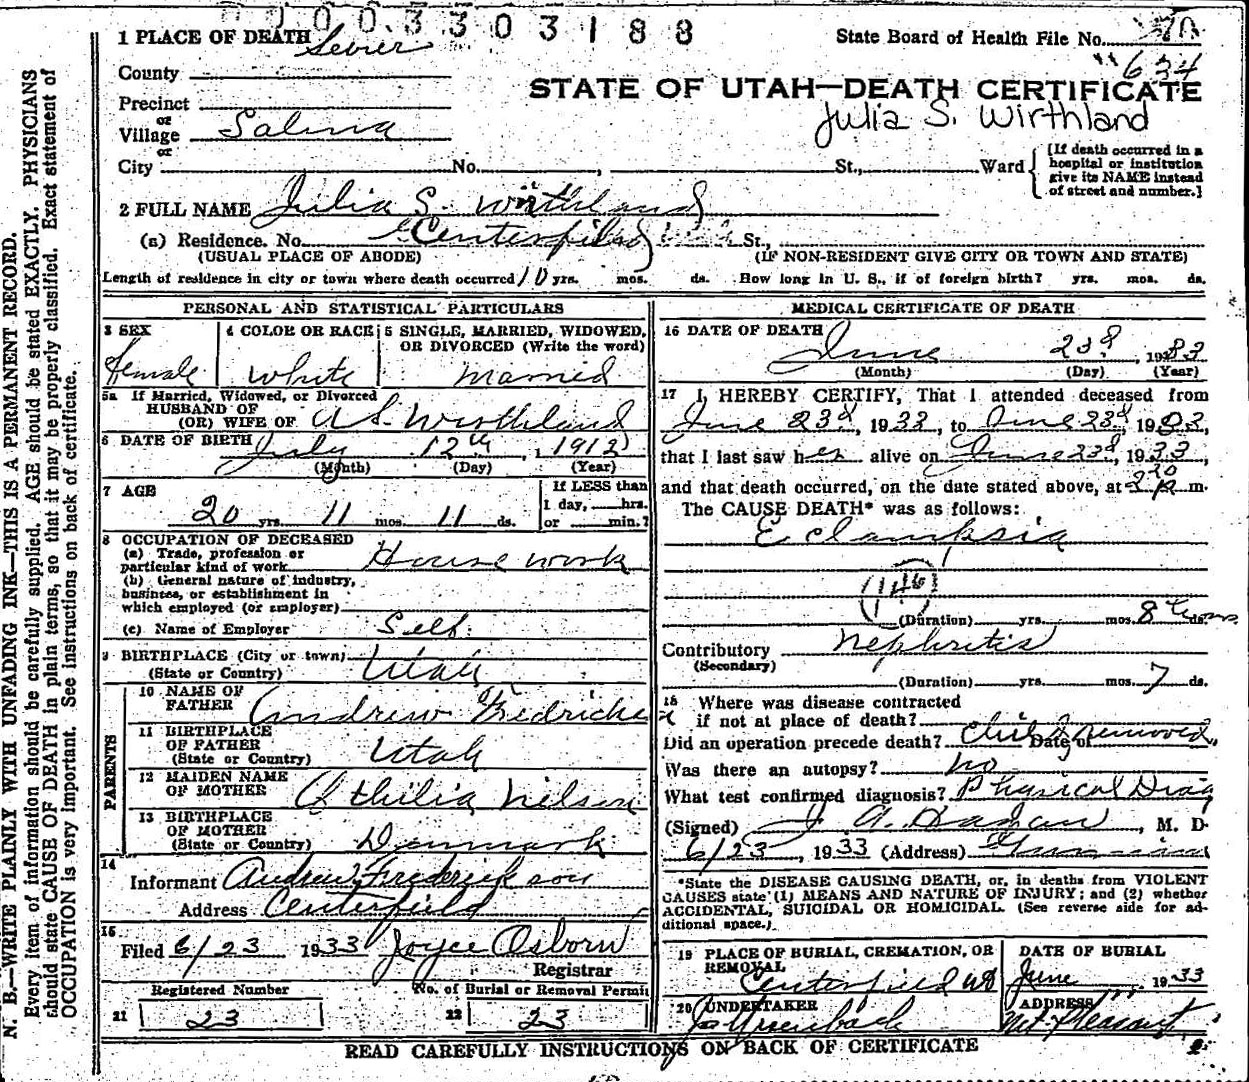 0000 3 3 0 3 1 8 8
1 PLACE OF DEATH Sevier
State Board of Health File No. 70
634
County
STATE OF UTAH—DEATH CERTIFICATE
Precinct
or
Village Salina
Julia S. Wirthland
or
City No. , St., Ward
[If death occurred in a
hospital or institution
give its NAME instead
of street and number.]
2 FULL NAME Julia S. Wirthland
(a) Residence. No. Centerfield St.,
(USUAL PLACE OF ABODE) (IF NON-RESIDENT GIVE CITY OR TOWN AND STATE)
Length of residence in city or town where death occurred 10 yrs. mos. ds. How long in U. S., if of foreign birth? yrs. mos. ds.
PERSONAL AND STATISTICAL PARTICULARS
3 SEX
female
4 COLOR OR RACE
White
5 SINGLE, MARRIED, WIDOWED,
OR DIVORCED (Write the word)
married
5a If Married, Widowed, or Divorced
HUSBAND OF
(OR) WIFE OF A S. Wirthland
6 DATE OF BIRTH July 12th, 1912
(Month) (Day) (Year)
7 AGE
20 yrs. 11 mos. 11 ds.
If LESS than
1 day, hrs.
or min.?
8 OCCUPATION OF DECEASED
(a) Trade, profession or
particular kind of work House work
(b) General nature of industry,
business, or establishment in
which employed (or employer)
(c) Name of Employer Self
9 BIRTHPLACE (City or town)
(State or Country) Utah
PARENTS
10 NAME OF
FATHER Andrew Fredricks
11 BIRTHPLACE
OF FATHER
(State or Country) Utah
12 MAIDEN NAME
OF MOTHER Othilia Nilson
13 BIRTHPLACE
OF MOTHER
(State or Country) Denmark
14
Informant Andrew Frederickson
Address Centerfield
15
Filed 6/23 1933 Joyce Osborn
Registrar
Registered Number No. of Burial or Removal Permit
21 23 22 23
MEDICAL CERTIFICATE OF DEATH
16 DATE OF DEATH
June 23d, 1933
(Month) (Day) (Year)
17 I, HEREBY CERTIFY, That I attended deceased from
June 23d, 1933, to June 23d, 1933,
that I last saw her alive on June 23d, 1933,
and that death occurred, on the date stated above, at m.
The CAUSE DEATH* was as follows:
Eclampsia
(146)
(Duration) yrs. mos. 8 ds.
Contributory nephritis
(Secondary)
(Duration) yrs. mos. 7 ds.
18 Where was disease contracted
if not at place of death?
Did an operation precede death? Child removed. Date of
Was there an autopsy? no
What test confirmed diagnosis? Physical Diag
(Signed) J A. Hagan, M. D.
6/23, 1933 (Address) Gunnison
*State the DISEASE CAUSING DEATH, or, in deaths from VIOLENT
CAUSES state (1) MEANS AND NATURE OF INJURY; and (2) whether
ACCIDENTAL, SUICIDAL OR HOMICIDAL. (See reverse side for ad-
ditional space.)
19 PLACE OF BURIAL, CREMATION, OR
REMOVAL
Centerfield
DATE OF BURIAL
June 1933
20 UNDERTAKER
ADDRESS
Mt Pleasant
READ CAREFULLY INSTRUCTIONS ON BACK OF CERTIFICATE
N. B.—WRITE PLAINLY WITH UNFADING INK—THIS IS A PERMANENT RECORD.
Every item of information should be carefully supplied. AGE should be stated EXACTLY. PHYSICIANS
should state CAUSE OF DEATH in plain terms, so that it may be properly classified. Exact statement of
OCCUPATION is very important. See instructions on back of certificate.